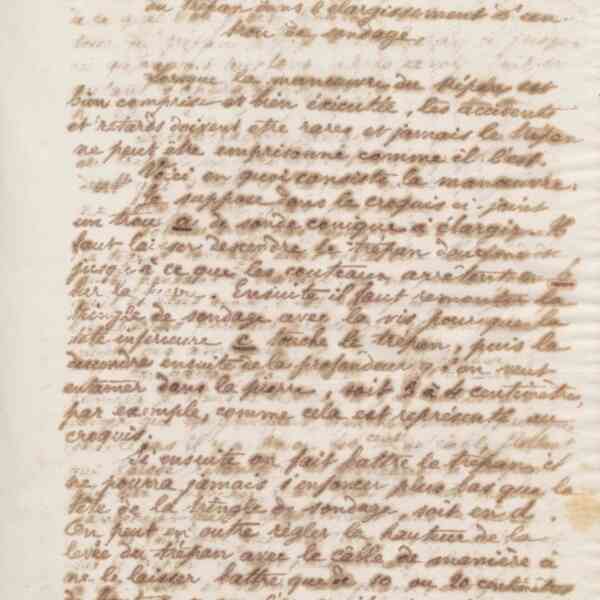 du trépan dans l'élargissement d'un
trou de sondage
Lorsque la manœuvre du trépan est
bien comprise et bien éxécutée, les accidents
et retards doivent être rares et jamais le trépan
ne peut être emprisonné comme il l'est.
Voici en quoi consiste la manœuvre:
Je suppose dans le croquis ci-joint
un trou a de sonde conique à élargir. Il
faut laisser descendre le trépan doucement
jusqu'à ce que les couteaux arrêtent en b
sur la pierre. Ensuite il faut remonter la
tringle de sondage avec la vis pour que la
tête inférieure c touche le trépan, puis la
descendre ensuite de la profondeur q. l'on veut
entamer dans la pierre, soit 3 à 4 centimètres,
par exemple, comme cela est représenté au
croquis.
Si ensuite on fait battre le trépan il
ne pourra jamais s'enfoncer plus bas que la
tête de la tringle de sondage, soit en d.
On peut en outre régler la hauteur de la
levée du trépan avec le câble de manière à
ne le laisser battre que de 10 ou 20 centimètres